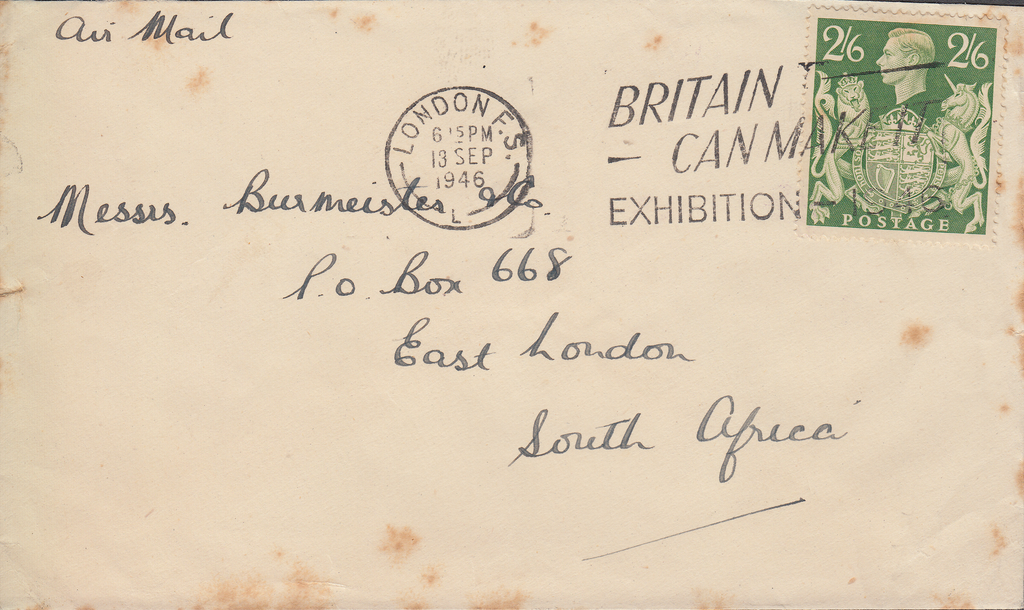 Air Mail
2/6 2/6
POSTAGE
LONDON F.S.
6 15 PM
13 SEP
1946
L
BRITAIN
CAN MAKE IT
EXHIBITION - 1946
Messrs. Burmeister & Co.
P.O. Box 668
East London
South Africa